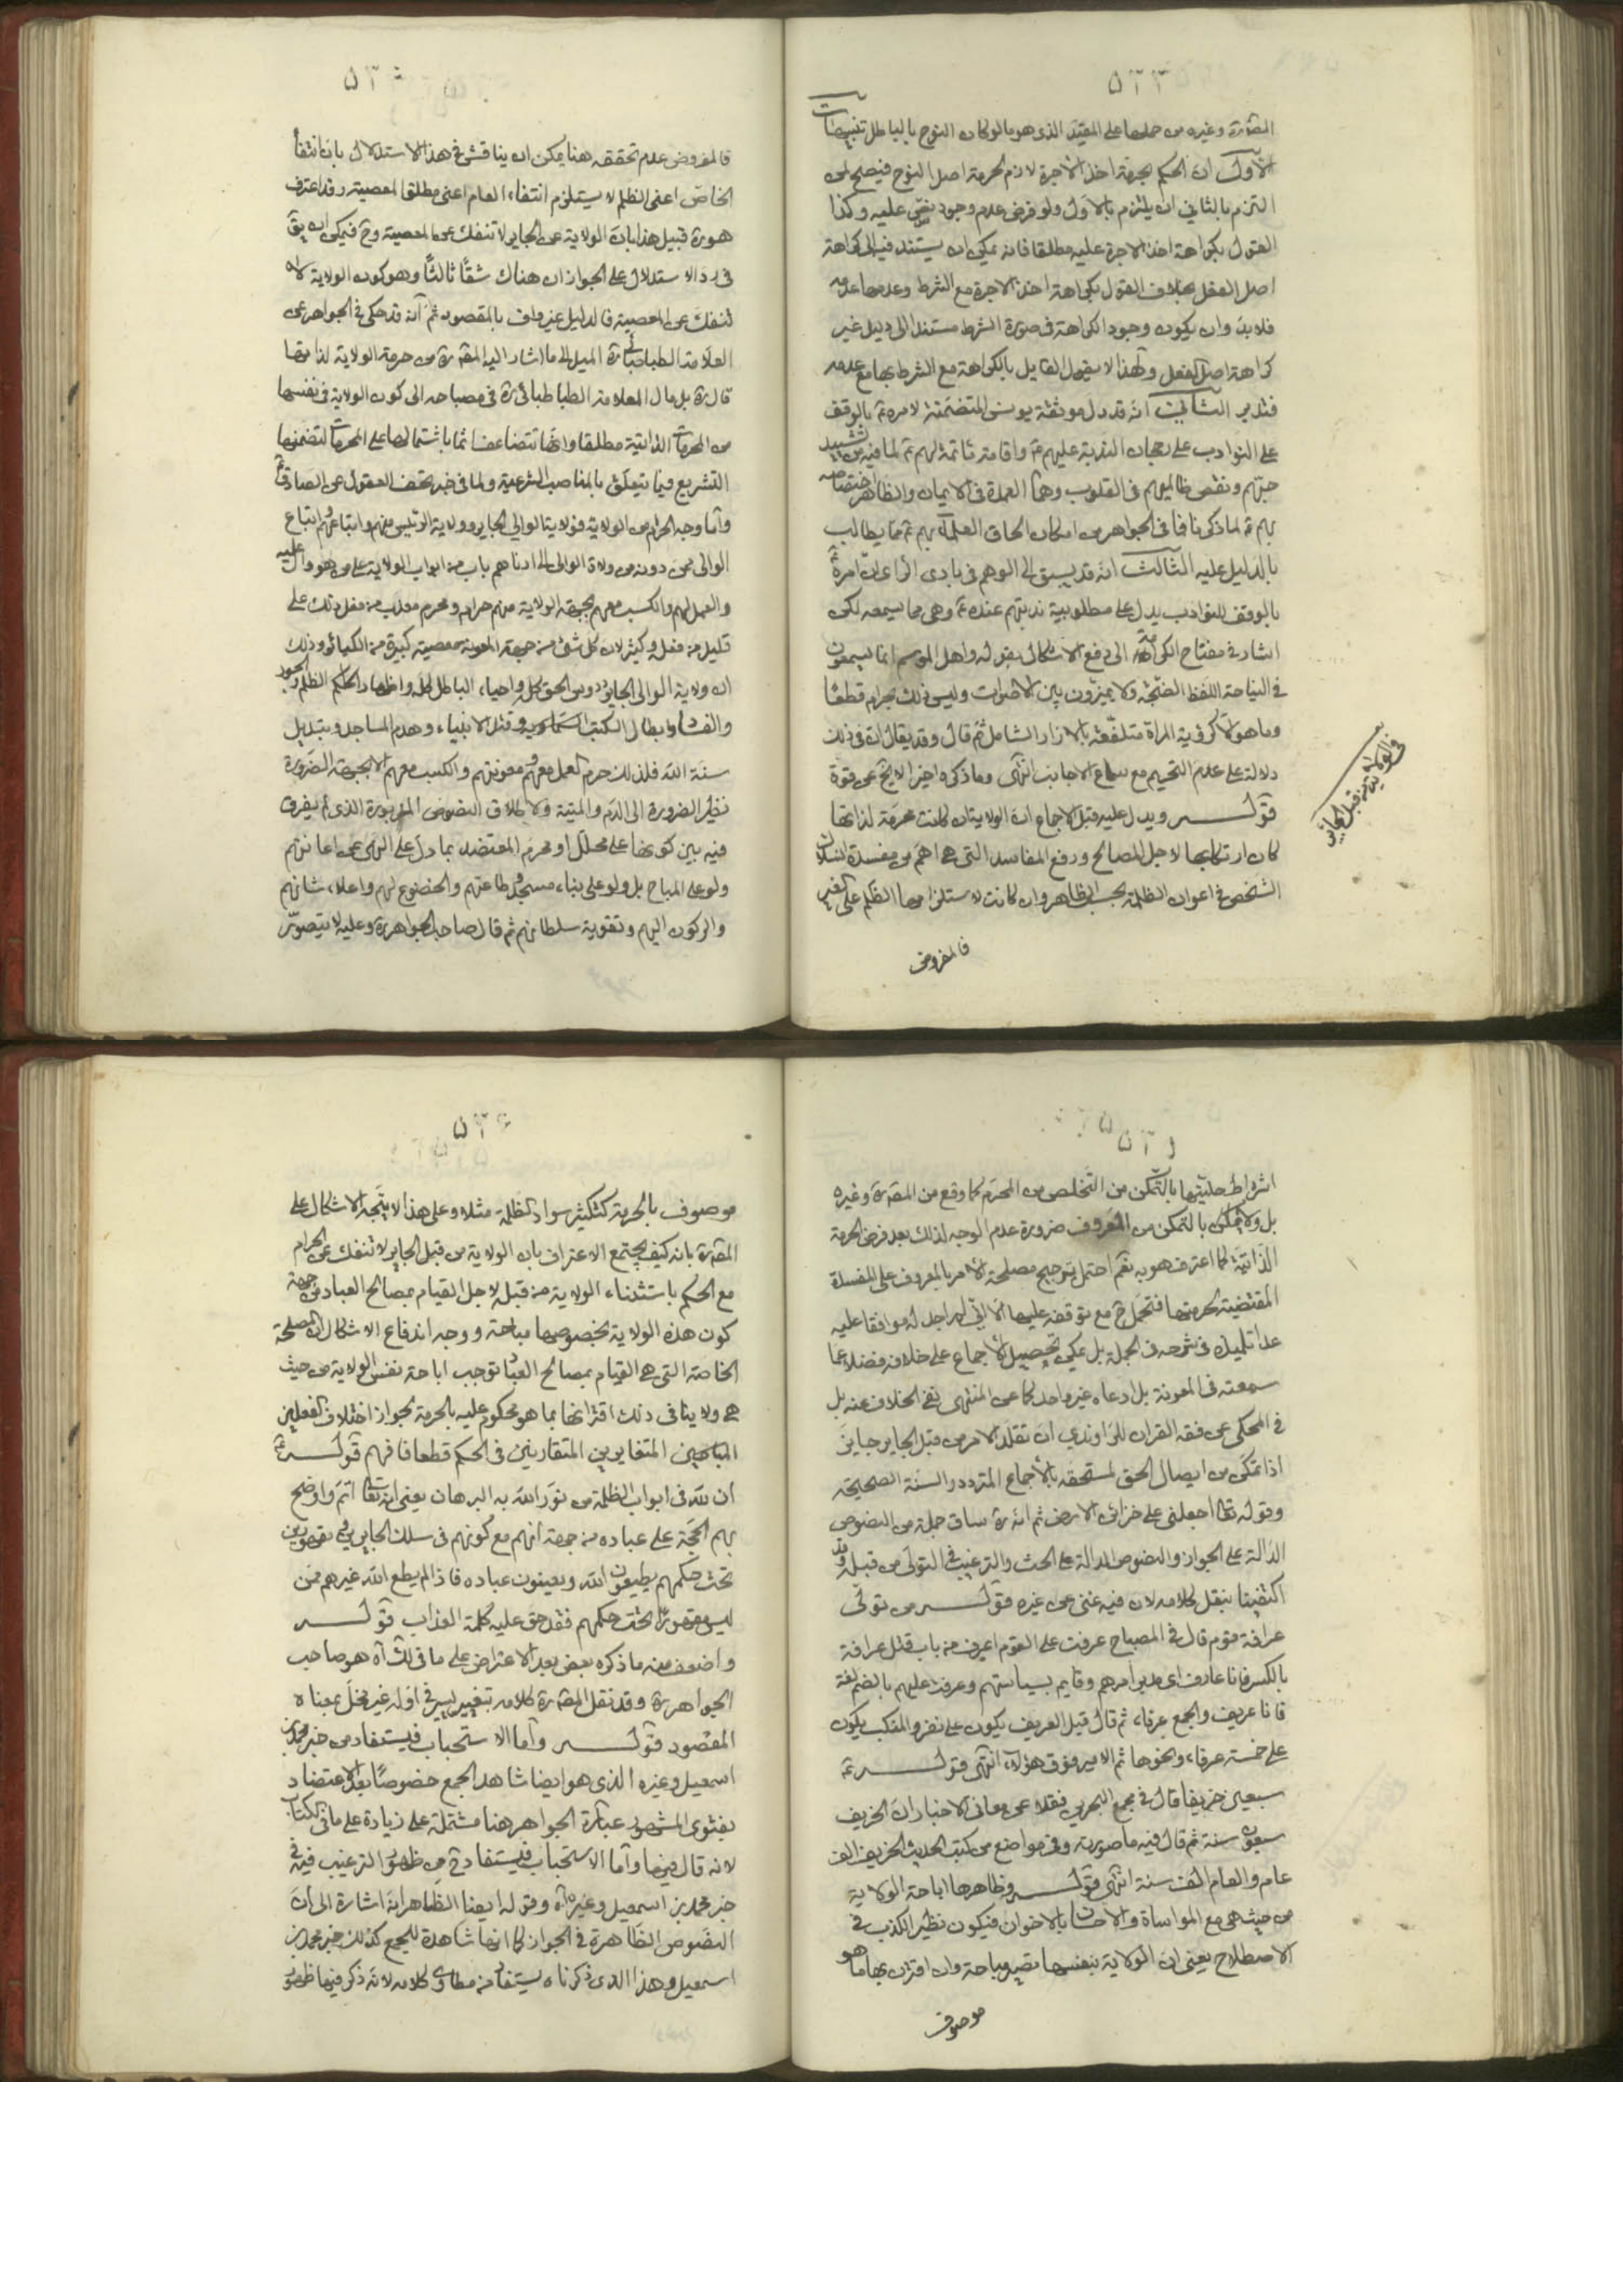 ٥٢٣
المص ره وغيره من حملها على المقيد الذى هو ما لو كان النوح بالباطل تنبيهات
الأول ان الحكم بحرمة اخذ الاجرة لازم لحرمة اصل النوح فيصح لمن
التزم بالثاني ان يلتزم بالاول ولو فرض عدم وجود نص عليه وكذا
القول بكراهة اخذ الاجرة عليه مطلقا فانه يمكن ان يستند فيه الى كراهة
اصل الفعل بخلاف القول بكراهة اخذ الاجرة مع الشرط وعدمها مع عدمه
فلا بد وان يكون وجود الكراهة فى صورة الشرط مستندا الى دليل غير
كراهة اصل الفعل ولهذا لا يقول القايل بالكراهة مع الشرط بها مع عدمه
فتدبر الثاني انه قد دل موثقة يونس المتضمنة لامره ع بالوقف
على النوادب على رجحان الندبة عليهم ع واقامة ماتمة لهم ع لما فيه من تشييد
حبهم وبغض ظالميهم فى القلوب وهما العمدة فى الايمان والظاهر اختصاصه
بهم ع لما ذكرنا فما فى الجواهر من امكان الحاق العلماء بهم ع مما يطالب
بالدليل عليه الثالث انه قد يسبق الى الوهم فى بادى الراى ان امره ع
بالوقف للنوادب يدل على مطلوبية ندبتهم عنده ع وهى مما يسمعه لكن
اشار فى مفتاح الكرامة الى دفع الاشكال بقوله واهل الموسم انما يسمعون
فى النياحة اللفظ الضجة ولا يميزون بين الاصوات وليس ذلك بحرام قطعا
وما هو الا كرؤية المراة متلفعة بالازار الشامل ثم قال وقد يقال ان فى ذلك
دلالة على عدم التحريم مع سماع الاجانب انتهى وما ذكره اخيرا لا يخ عن قوة
قوله ويدل عليه قبل الاجماع ان الولاية ان كانت محرمة لذاتها
كان ارتكابها لاجل المصالح ودفع المفاسد التى هى اهم من مفسدة انسلاك
الشخص فى اعوان الظلمة بحسب الظاهر وان كانت لاستلزامها الظلم على الغير
فالمفروض
فى الولاية من قبل الجاير
٥٢٤
فالمفروض عدم تحققه هنا يمكن ان يناقش فى هذا الاستدلال بان انتفاء
الخاص اعنى الظلم لا يستلزم انتفاء العام اعنى مطلق المعصية وقد اعترف
هو ره قبيل هذا بان الولاية عن الجاير لا تنفك عن المعصية وح فيمكن ان يق
فى رد الاستدلال على الجواز ان هناك شقا ثالثا وهو كون الولاية لا
تنفك عن المعصية فالدليل غير واف بالمقصود ثم انه قد حكى فى الجواهر عن
العلامة الطباطبائي ره الميل الى ما اشار اليه المص ره من حرمة الولاية لذاتها
قال ره بل مال العلامة الطباطبائى ره فى مصباحه الى كون الولاية فى نفسها
من المحرمات الذاتية مطلقا وانها تتضاعف اثما باشتمالها على المحرمات لتضمنها
التشريع فيما يتعلق بالمناصب الشرعية ولما فى خبر تحف العقول عن الصادق ع
واما وجه الحرام من الولاية فولاية الوالي الجاير وولاية الرئيس منهم واتباعهم اتباع
الوالى فمن دونه من ولاة الوالى الى ادناهم بابا من ابواب الولاية على من هو وال عليه
والعمل لهم والكسب معهم بجهة الولاية منهم حرام ومحرم معذب من فعل ذلك على
قليل من فعله وكثير لان كل شئ من جهة المعونة معصية كبيرة من الكبائر وذلك
ان ولاية الوالى الجاير دوس الحق كله واحياء الباطل كله واظهار الحكم الظلم والجور
والفساد وابطال الكتب السماوية وقتل الانبياء وهدم المساجد وتبديل
سنة الله فلذلك حرم العمل معهم ومعونتهم والكسب معهم الا بجهة الضرورة
نظير الضرورة الى الدم والميتة ولاطلاق النصوص المزبورة الذى لم يفرق
فيه بين كونها على محلل او محرم المعتضد بما دل على النهى عن اعانتهم
ولو على المباح بل ولو على بناء مسجد وطاعتهم والخضوع لهم واعلاء شانهم
والركون اليهم وتقوية سلطانهم ثم قال صاحب الجواهر ره وعليه لا يتصور
٥٢٥
اشتراط حليتها بالتمكن من التخلص من المحرم كما وقع من المص ره وغيره
بل ولا يمكن بالتمكن من المعروف ضرورة عدم الوجه لذلك بعد فرض الحرمة
الذاتية كما اعترف هو به نعم احتمل ترجيح مصلحة الامر بالمعروف على المفسدة
المقتضية لحرمتها فتحمل ح مع توقفه عليها الا انى لم اجد له موافقا عليه
عدا تلميذه فى شرحه فى الجملة بل يمكن تحصيل الاجماع على خلافه فضلا عما
سمعته فى المعونة بل ادعاه غير واحد كما عن المنتهى نفى الخلاف عنه بل
فى المحكى عن فقه القران للراوندي ان تقلد الامر من قبل الجاير جايز
اذا تمكن من ايصال الحق لمستحقه بالاجماع المتردد والسنة الصحيحة
وقوله تعالى اجعلنى على خزائن الارض ثم انه ره ساق جملة من النصوص
الدالة على الجواز والنصوص الدالة على الحث والترغيب فى التولى من قبله وقد
اكتفينا بنقل كلامه لان فيه غنى عن غيره قوله من تولى
عرافة قوم قال فى المصباح عرفت على القوم اعرف من باب قتل عرافة
بالكسر فانا عارف اى مدبر امرهم وقايم بسياستهم وعرفت عليهم بالضم لغة
فانا عريف والجمع عرفاء ثم قال قيل العريف يكون على نفر والمنكب يكون
على خمسة عرفاء ونحوها ثم الامير فوق هؤلاء انتهى قوله ع
سبعين خريفا قال فى مجمع البحرين نقلا عن معانى الاخبار ان الخريف
سبعون سنة ثم قال فيه ما صورته وفى مواضع من كتب الحديث الخريف الف
عام والعام الف سنة انتهى قوله وظاهرها اباحة الولاية
من حيث هى مع المواساة والاحسان بالاخوان فيكون نظير الكذب فى
الاصطلاح يعنى ان الولاية بنفسها تصير مباحة وان اقترن بها ما هو
موصوف
٥٢٦
موصوف بالحرمة كتكثير سواد الظلمة مثلا وعلى هذا لا يتجه الاشكال على
المص ره بانه كيف يجتمع الاعتراف بان الولاية من قبل الجاير لا تنفك عن الحرام
مع الحكم باستثناء الولاية من قبله لاجل القيام بمصالح العباد من جهة
كون هذه الولاية بخصوصها مباحة ووجه اندفاع الاشكال ان المصلحة
الخاصة التى هى القيام بمصالح العباد توجب اباحة نفس الولاية من حيث
هى ولا ينافى ذلك اقترانها بما هو محكوم عليه بالحرمة لجواز اختلاف الفعلين
المتباينين المتغايرين المتقارنين فى الحكم قطعا فافهم قوله ع
ان لله فى ابواب الظلمة من نور الله به البرهان يعنى انه تعالى اتم واوضح
بهم الحجة على عباده من جهة انهم مع كونهم فى سلك الجايرين ومقهورين
تحت حكمهم يطيعون الله ويعينون عباده فاذا لم يطع الله غيرهم ممن
ليس مقهورا تحت حكمهم فقد حق عليه كلمة العذاب قوله
واضعف منه ما ذكره بعض بعد الاعتراض على ما فى لك آه هو صاحب
الجواهر ره وقد نقل المص ره كلامه بتغيير يسير فى اوله غير مخل بمعناه
المقصود قوله واما الاستحباب فيستفاد من خبر محمد بن
اسمعيل وغيره الذى هو ايضا شاهد الجمع خصوصا بعد الاعتضاد
بفتوى المشهور عبارة الجواهر هنا مشتملة على زيادة على ما فى الكتاب
لانه قال فيها واما الاستحباب فيستفاد ح من ظهور الترغيب فيه فى
خبر محمد بن اسمعيل وغيره آه وقوله ايضا الظاهر انه اشارة الى ان
النصوص الظاهرة فى الجواز كما انها شاهدة للجمع كذلك خبر محمد بن
اسمعيل وهذا الذى ذكرناه يستفاد من مطاوى كلامه لانه ذكر فيها ظهور